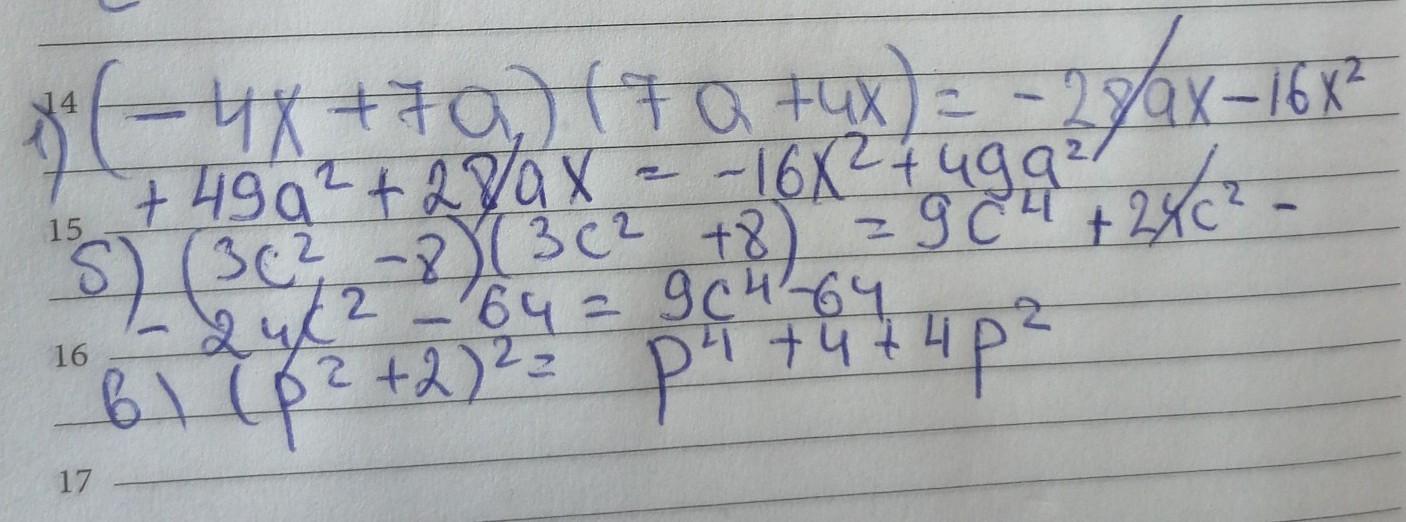 14
1) (-4x+7a)(7a+4x)= -28ax-16x²
+49a²+28ax = -16x²+49a²
15
б) (3c²-8)(3c²+8) = 9c⁴+24c²-
-24c²-64 = 9c⁴-64
16
в) (p²+2)²= p⁴+4+4p²
17